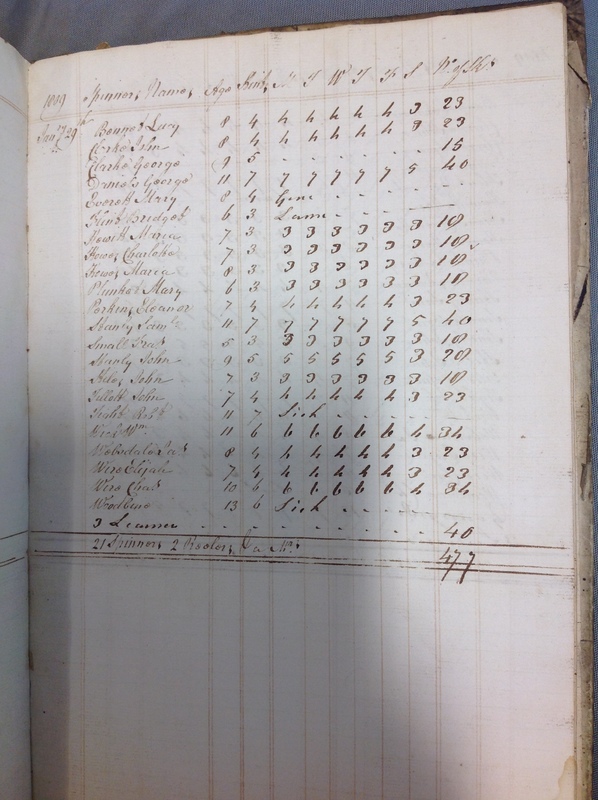 1809 Spinners Names Age Stint M T W T F S No of Sks
Jany 29th Bennet Lucy 8 4 4 4 4 4 4 3 23
Clarke John 8 4 4 4 4 4 4 3 23
Clarke George 9 5 . . . . . 15
Daniels George 11 7 7 7 7 7 7 5 40
Everett Mary 8 4 Gone . . . .
Flint Bridget 6 3 Lame . . . .
Howitt Maria 7 3 3 3 3 3 3 3 18
Howes Charlotte 7 3 3 3 3 3 3 3 18
Howes Maria 8 3 3 3 3 3 3 3 18
Plunket Mary 6 3 3 3 3 3 3 3 18
Perkins Eleanor 7 4 4 4 4 4 4 3 23
Saml 11 7 7 7 7 7 7 5 40
Small 5 3 3 3 3 3 3 3 18
John 9 5 5 5 5 5 5 3 28
John 7 3 3 3 3 3 3 3 18
Tillott John 7 4 4 4 4 4 4 3 23
Robt 11 7 Sick . . . .
Wm 11 6 6 6 6 6 6 4 34
8 4 4 4 4 4 4 3 23
Elijah 7 4 4 4 4 4 4 3 23
Chas 10 6 6 6 6 6 6 4 34
13 6 Sick . . . .
3 Learners . . . . . . . . 40
21 Spinners 2 Reelers 477